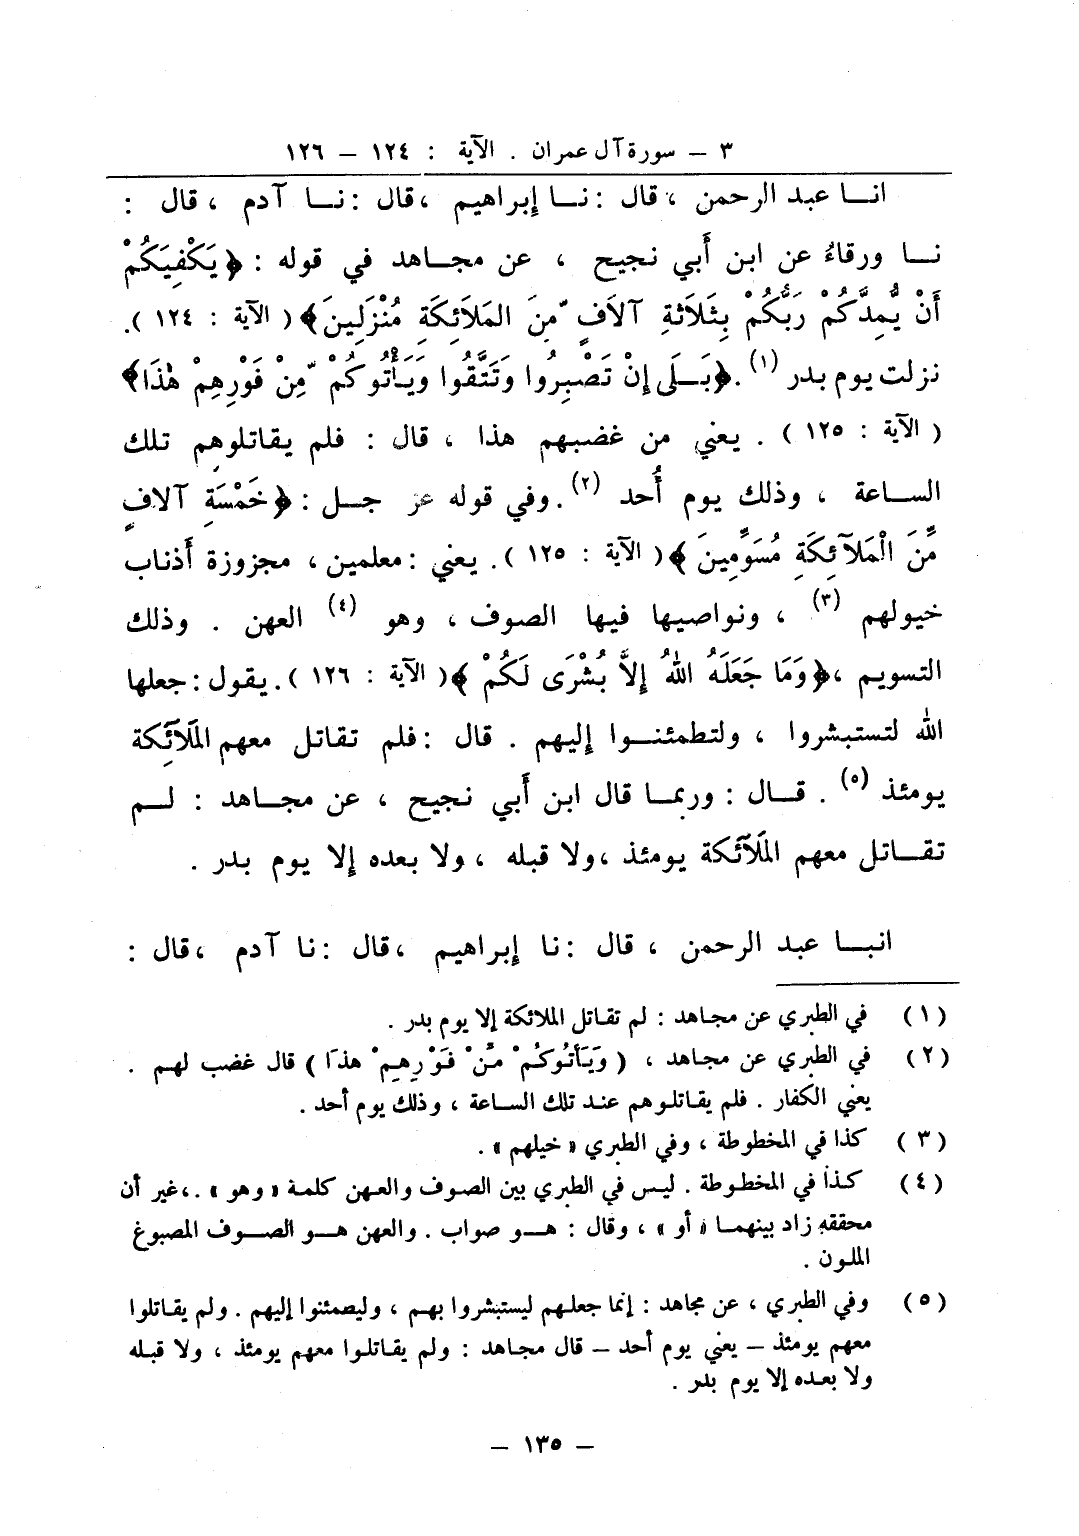 ٣ – سورة آل عمران . الآية : ١٢٤ – ١٢٦
انــا عبد الرحمن ، قال : نــا إبراهيم ، قال : نــا آدم ، قال :
نــا ورقاءُ عن ابن أَبي نجيح ، عن مجــاهد في قوله : ﴿يَكْفِيَكُمْ
أَنْ يُّمِدَّكُمْ رَبُّكُمْ بِثَلَاثَةِ آلَافٍ مِّنَ المَلَائِكَةِ مُنْزَلِينَ﴾ ( الآية : ١٢٤ ).
نزلت يوم بدر (١) . ﴿بَــلَى إِنْ تَصْبِرُوا وَتَتَّقُوا وَيَأْتُوكُمْ مِّنْ فَوْرِهِمْ هٰذَا﴾
( الآية : ١٢٥ ) . يعني من غضبهم هذا ، قال : فلم يقاتلوهم تلك
الســاعة ، وذلك يوم أُحد (٢) . وفي قوله عز جــل : ﴿ خَمْسَةِ آلافٍ
مِّنَ الْمَلآئِكَةِ مُسَوِّمِينَ ﴾ ( الآية : ١٢٥ ). يعني : معلمين ، مجزوزة أَذناب
خيولهم (٣) ، ونواصيها فيها الصوف ، وهو (٤) العهن . وذلك
التسويم ، ﴿ وَمَا جَعَلَهُ اللهُ إِلاَّ بُشْرَى لَكُمْ ﴾ ( الآية : ١٢٦ ) . يقول : جعلها
الله لتستبشروا ، ولتطمئنــوا إِليهم . قال : فلم تقاتل معهم المَلَآئكة
يومئذ (٥) . قــال : وربمــا قال ابن أَبي نجيح ، عن مجــاهد : لــم
تقــاتل معهم المَلَآئكة يومئذ ، ولا قبله ، ولا بعده إِلا يوم بدر .
انبــا عبد الرحمن ، قال : نا إبراهيم ، قال : نا آدم ، قال :
(١) في الطبري عن مجـاهد : لم تقـاتل الملائكة إلا يوم بدر .
(٢) في الطبري عن مجـاهد ، ( وَيَأتُوكُمْ مِّنْ فَوْرِهِمْ هذَا ) قال غضب لهـم .
يعني الكفار . فلم يقاتلـوهم عنـد تلك السـاعة ، وذلك يوم أحد .
(٣) كذا في المخطوطة ، وفي الطبري « خيلهم » .
(٤) كـذا في المخطـوطة . ليس في الطبري بين الصـوف والعـهن كلمـة « وهو » . ، غير أن
محققه زاد بينهمـا « أو » ، وقال : هــو صواب . والعهن هــو الصــوف المصبوغ
الملـون .
(٥) وفي الطبري ، عن مجاهد : إنما جعلـهم ليستبشروا بهـم ، وليصمئنوا إليهم . ولم يقـاتلوا
معهم يومئذ – يعني يوم أحد – قال مجـاهد : ولم يقاتلـوا معهم يومئذ ، ولا قبـله
ولا بعـده إلا يوم بدر .
– ١٣٥ –